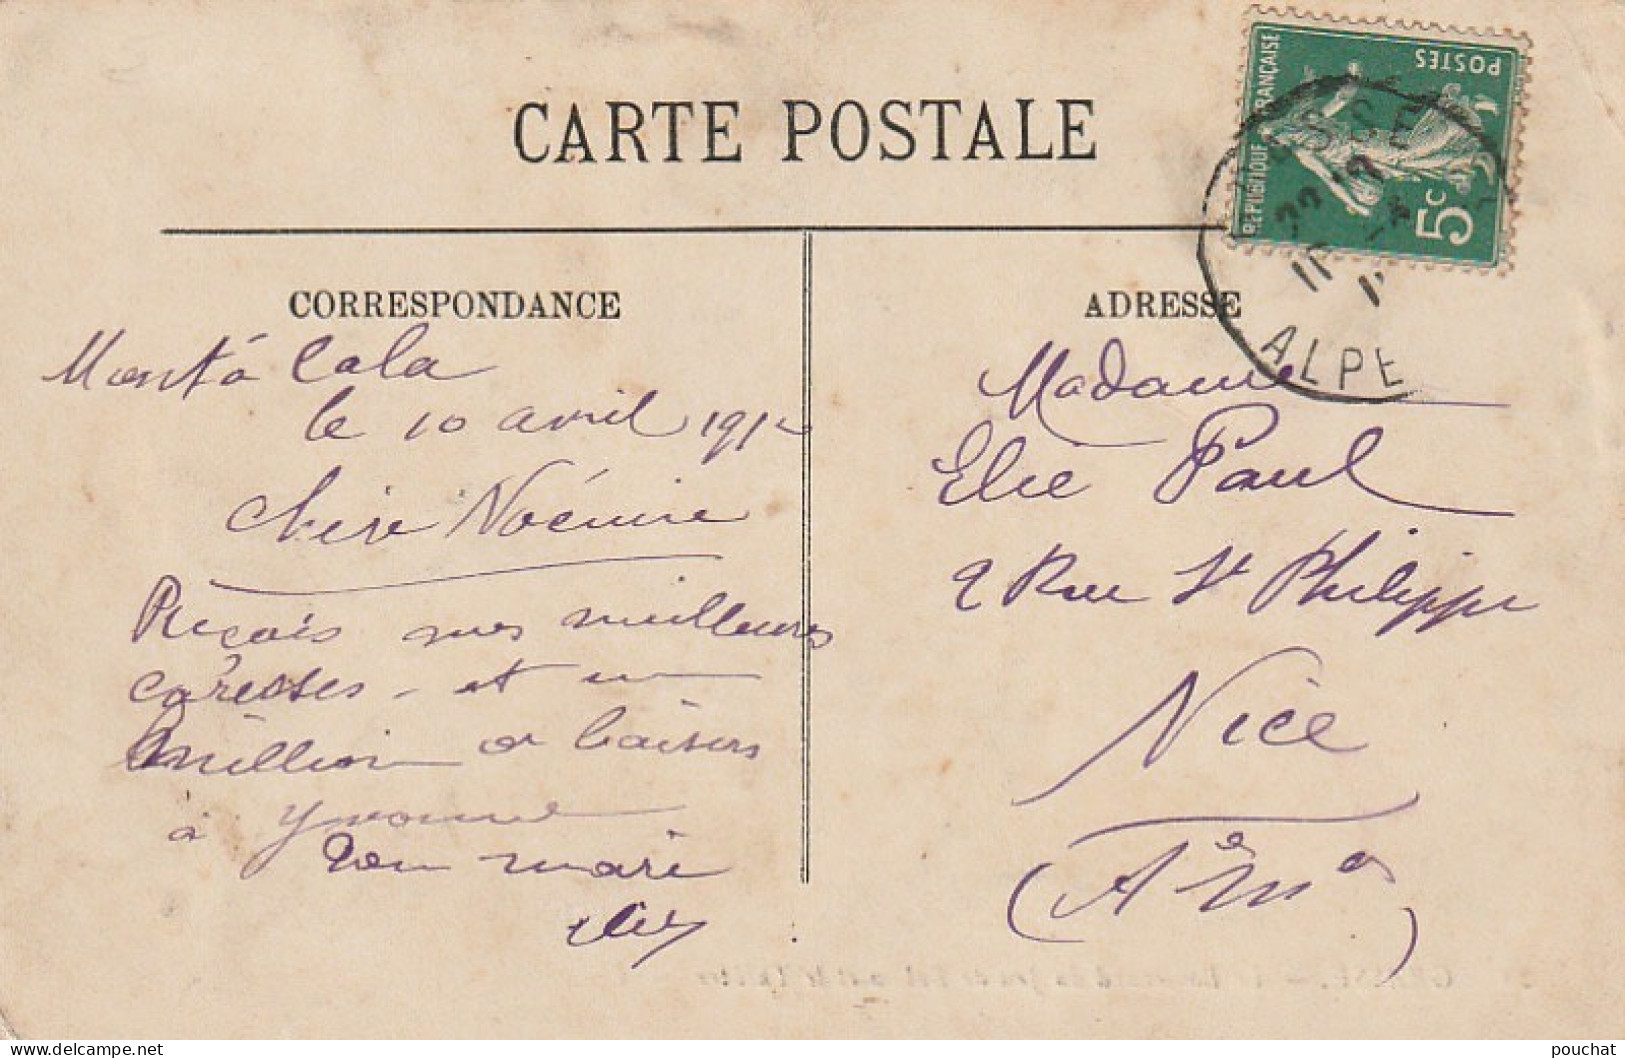 CARTE POSTALE
RÉPUBLIQUE FRANÇAISE
POSTES
5c
SSE
22
ALPE
CORRESPONDANCE
le 10 avril 1912
chère Noémie
Reçois mes meilleures
caresses - et un
million de baisers
à Yvonne
Ton mari
Elie
ADRESSE
Madame
Elie Paul
2 Rue St Philippe
Nice
(A Mes)
pouchat